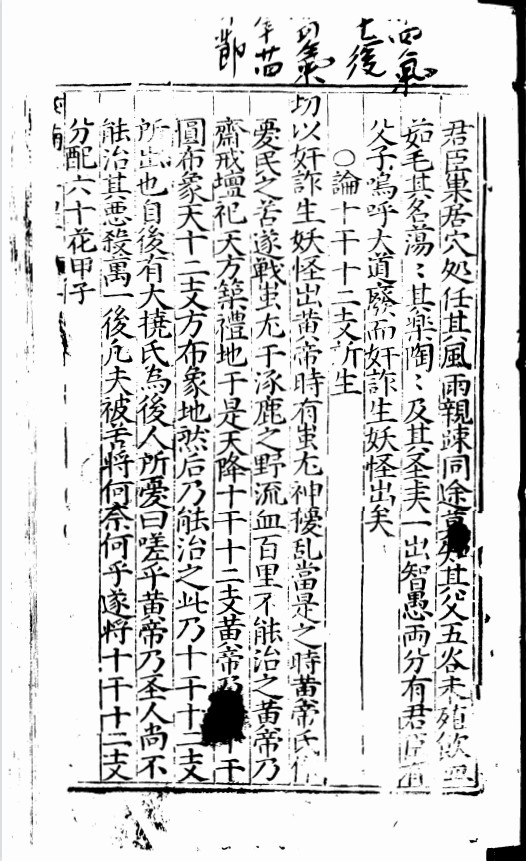 四氣
七後
四氣
年苗
節
君臣巢居穴処任其風雨親踈同途莫知其父五谷未殖飲血
茹毛其名蕩〻其楽陶〻及其圣主一出智愚両分有君臣有
父子嗚呼大道廢而奸詐生妖怪出矣
○論十干十二支所生
切以奸詐生妖怪出黄帝時有蚩尤神擾乱當是之時黄帝氏
憂民之苦遂戰蚩尤于涿鹿之野流血百里不能治之黄帝乃
齋戒壇祀天方築禮地于是天降十干十二支黄帝乃十干
圓布象天十二支方布象地然后乃能治之此乃十干十二支
所出也自後有大撓氏為後人所憂曰嗟乎黄帝乃圣人尚不
能治其悪殺萬一後凡夫被苦将何奈何乎遂将十干十二支
分配六十花甲子